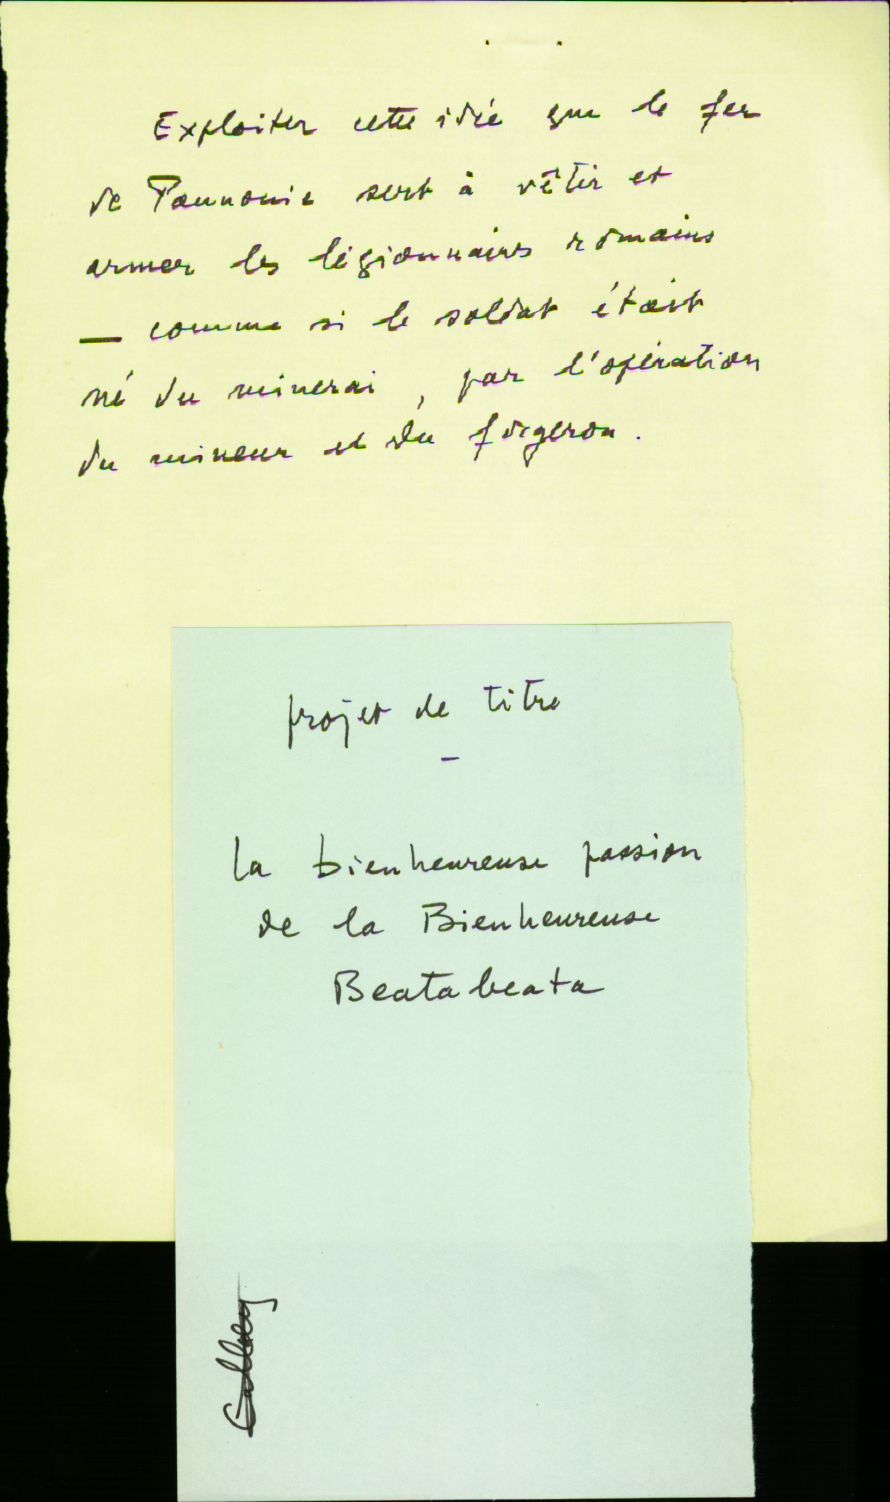 Exploiter cette idée que le fer
de Pannonie sert à vêtir et
armer les légionnaires romains
— comme si le soldat était
né du minerai, par l'opération
du mineur et du forgeron.
projet de titre
–
la bienheureuse passion
de la Bienheureuse
Beatabeata